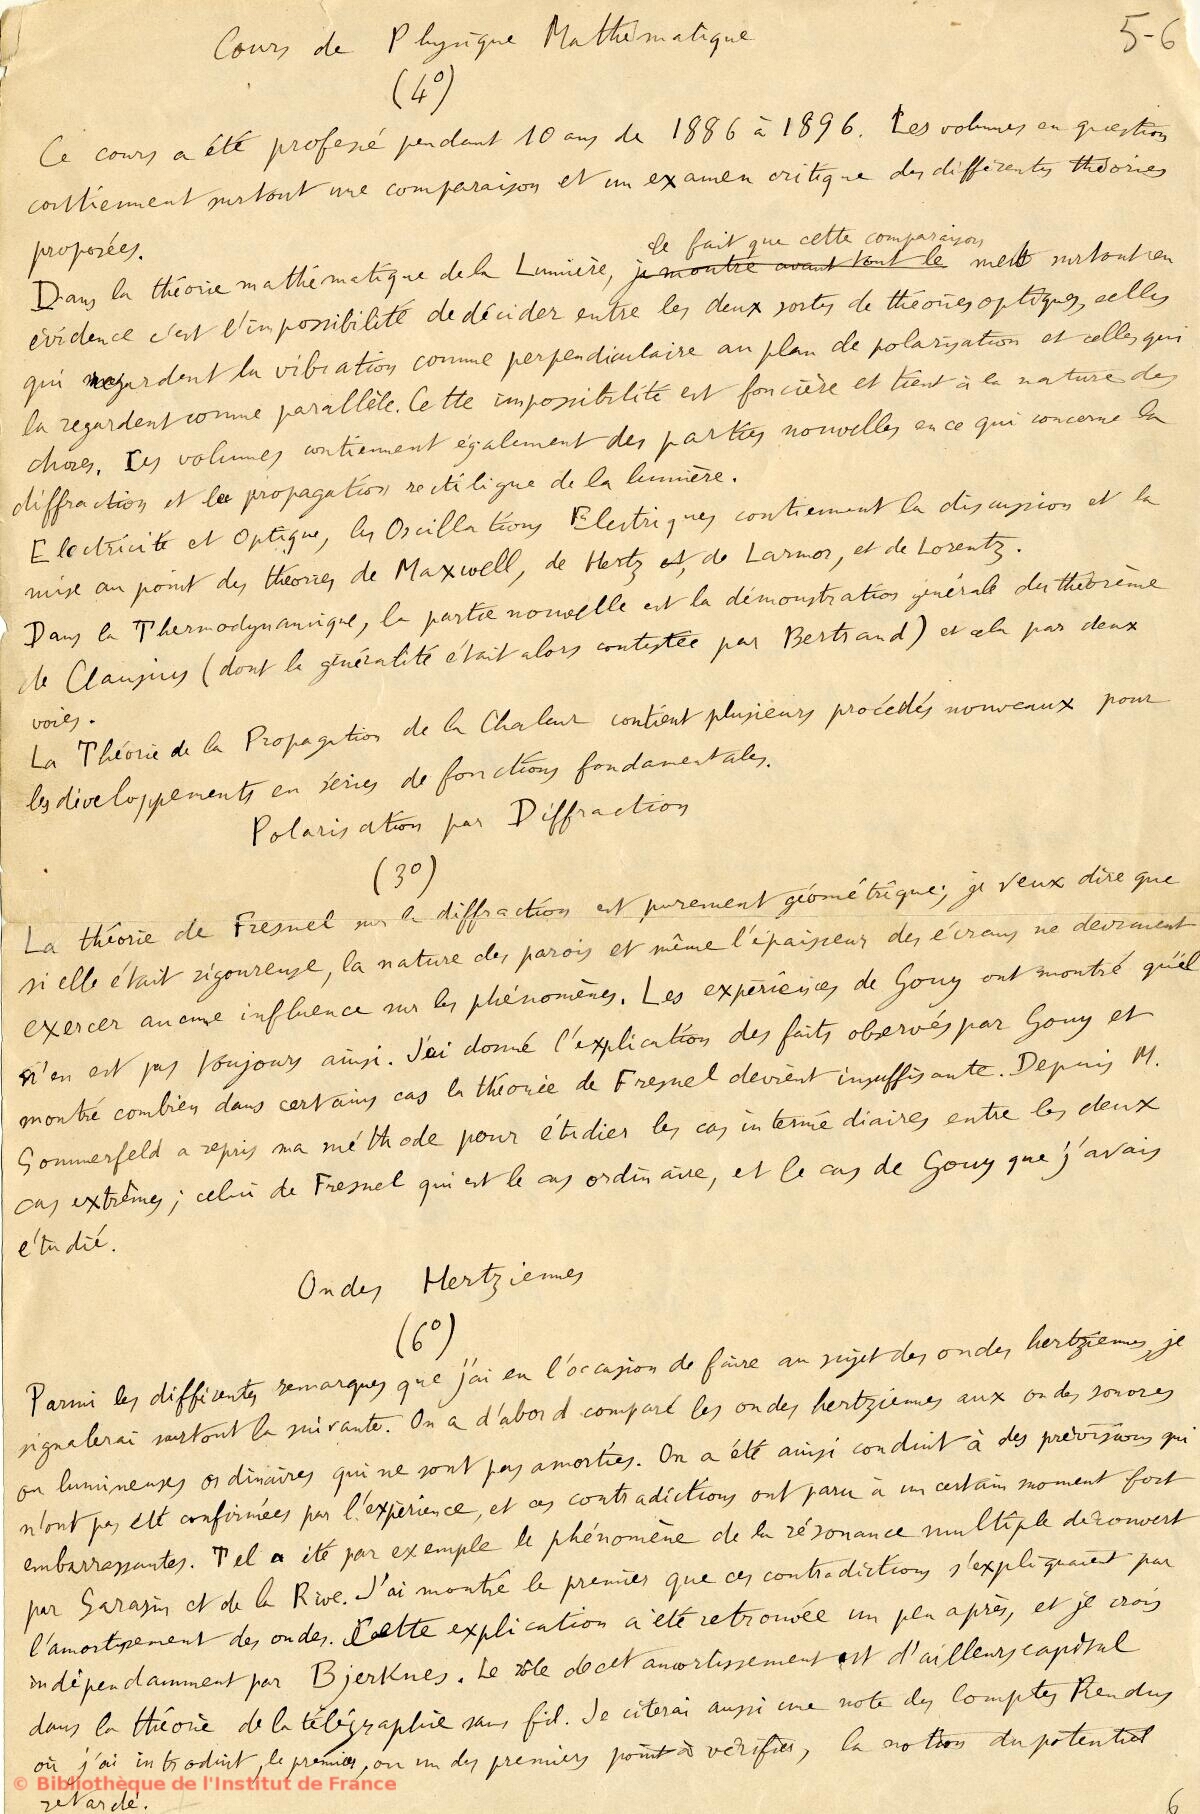 5-6
Cours de Physique Mathématique
(4°)
Ce cours a été professé pendant 10 ans de 1886 à 1896. Les volumes en question
contiennent surtout une comparaison et un examen critique des différentes théories
proposées.
le fait que cette comparaison
Dans la théorie mathématique de la Lumière, je montre avant tout le met surtout en
évidence c'est l'impossibilité de décider entre les deux sortes de théories optiques, celles
qui regardent la vibration comme perpendiculaire au plan de polarisation et celles qui
la regardent comme parallèle. Cette impossibilité est foncière et tient à la nature des
choses. Les volumes contiennent également des parties nouvelles en ce qui concerne la
diffraction et la propagation rectiligne de la lumière.
Electricité et Optique, les Oscillations Electriques contiennent la discussion et la
mise au point des théories de Maxwell, de Hertz et, de Larmor, et de Lorentz.
Dans la Thermodynamique, la partie nouvelle est la démonstration générale du théorème
de Clausius (dont la généralité était alors contestée par Bertrand) et cela par deux
voies.
La Théorie de la Propagation de la Chaleur contient plusieurs procédés nouveaux pour
les développements en séries de fonctions fondamentales.
Polarisation par Diffraction
(3°)
La théorie de Fresnel sur la diffraction est purement géométrique; je veux dire que
si elle était rigoureuse, la nature des parois et même l'épaisseur des écrans ne devraient
exercer aucune influence sur les phénomènes. Les expériences de Gouy ont montré qu'il
n'en est pas toujours ainsi. J'ai donné l'explication des faits observés par Gouy et
montré combien dans certains cas la théorie de Fresnel devient insuffisante. Depuis M.
Sommerfeld a repris ma méthode pour étudier les cas intermédiaires entre les deux
cas extrêmes; celui de Fresnel qui est le cas ordinaire, et le cas de Gouy que j'avais
étudié.
Ondes Hertziennes
(6°)
Parmi les différentes remarques que j'ai eu l'occasion de faire au sujet des ondes hertziennes, je
signalerai surtout la suivante. On a d'abord comparé les ondes hertziennes aux ondes sonores
ou lumineuses ordinaires qui ne sont pas amorties. On a été ainsi conduit à des prévisions qui
n'ont pas été confirmées par l'expérience, et ces contradictions ont paru à un certain moment fort
embarrassantes. Tel a été par exemple le phénomène de la résonance multiple découvert
par Sarasin et de la Rive. J'ai montré le premier que ces contradictions s'expliquaient par
l'amortissement des ondes. Cette explication a été retrouvée un peu après, et je crois
indépendamment par Bjerknes. Le rôle de cet amortissement est d'ailleurs capital
dans la théorie de la télégraphie sans fil. Je citerai aussi une note des Comptes Rendus
où j'ai introduit, le premier, ou un des premiers point à vérifier, la notion du potentiel
retardé.
6
© Bibliothèque de l'Institut de France